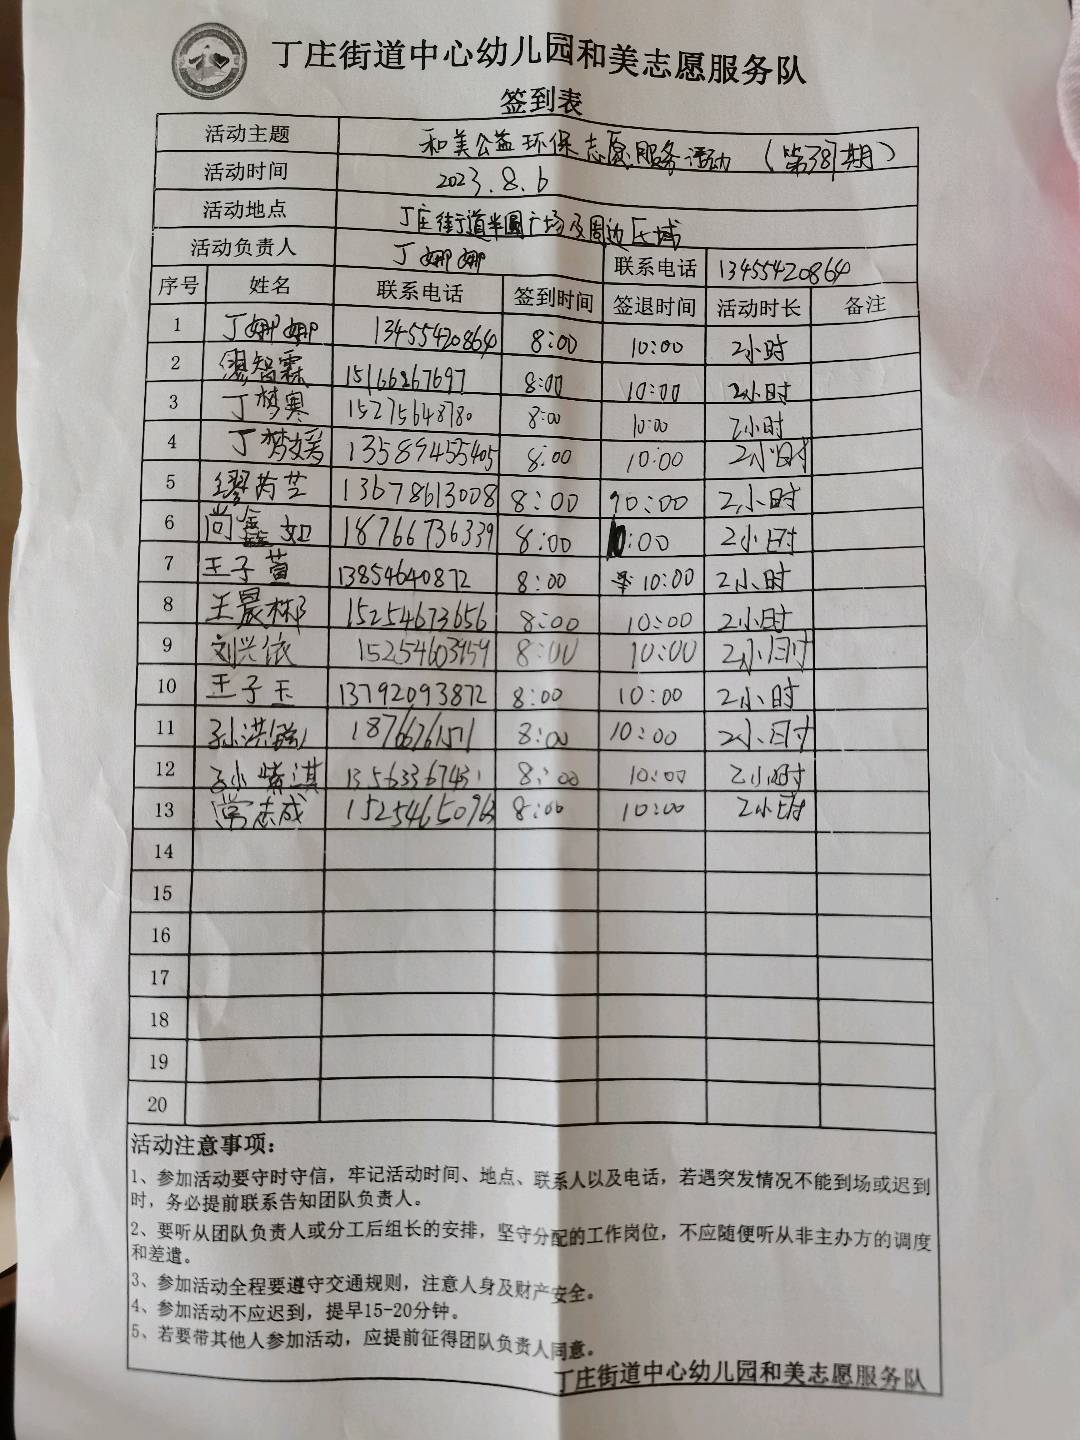 丁庄街道中心幼儿园和美志愿服务队
签到表
活动主题 和美公益环保志愿服务活动（第381期）
活动时间 2023.8.6
活动地点 丁庄街道半圆广场及周边区域
活动负责人 丁娜娜 联系电话 13455420864
序号 姓名 联系电话 签到时间 签退时间 活动时长 备注
1 丁娜娜 13455420864 8:00 10:00 2小时
2 缪智霖 15166267697 8:00 10:00 2小时
3 丁梦寒 15275648780 8:00 10:00 2小时
4 丁梦媛 13589455405 8:00 10:00 2小时
5 缪芮芝 13678613008 8:00 10:00 2小时
6 尚鑫如 18766736339 8:00 10:00 2小时
7 王子萱 13854640872 8:00 10:00 2小时
8 王晨彬 15254673656 8:00 10:00 2小时
9 刘兴依 15254603959 8:00 10:00 2小时
10 王子玉 13792093872 8:00 10:00 2小时
11 孙洪 8:00 10:00 2小时
12 孙紫淇 13563367431 8:00 10:00 2小时
13 常志成 15254650963 8:00 10:00 2小时
14
15
16
17
18
19
20
活动注意事项：
1、参加活动要守时守信，牢记活动时间、地点、联系人以及电话，若遇突发情况不能到场或迟到
时，务必提前联系告知团队负责人。
2、要听从团队负责人或分工后组长的安排，坚守分配的工作岗位，不应随便听从非主办方的调度
和差遣。
3、参加活动全程要遵守交通规则，注意人身及财产安全。
4、参加活动不应迟到，提早15-20分钟。
5、若要带其他人参加活动，应提前征得团队负责人同意。
丁庄街道中心幼儿园和美志愿服务队